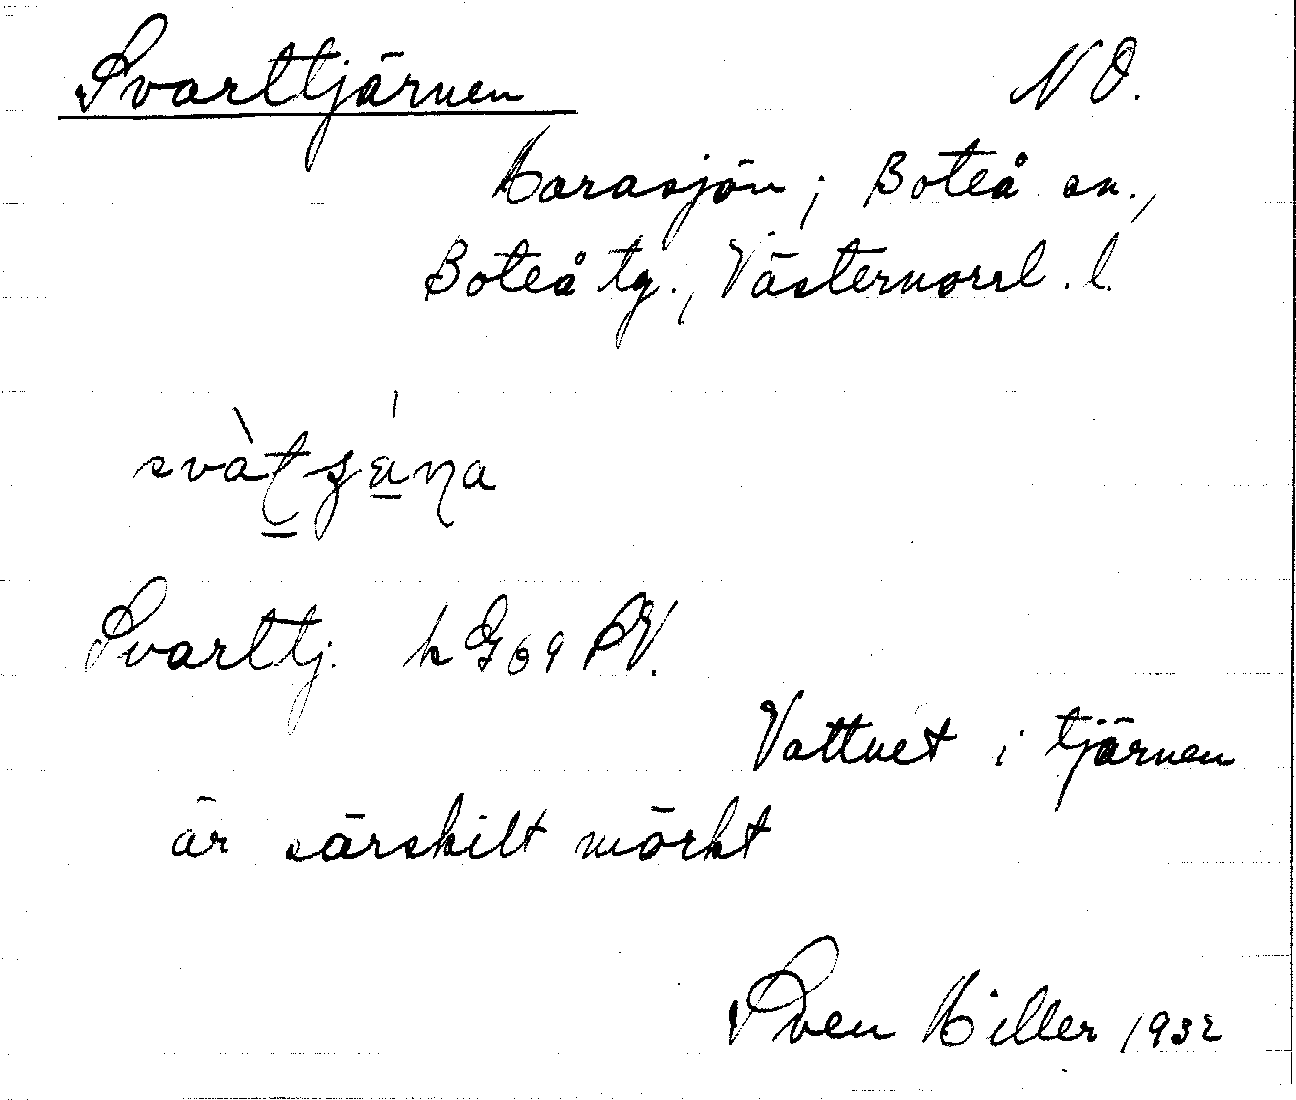 Svarttjärnen NO.
Harasjön; Boteå sn.,
Boteå tg., Västernorrl. l.
Svarttj. h G 69 SV.
Vattnet i tjärnen
är särskilt mörkt
Sven Hiller 1932